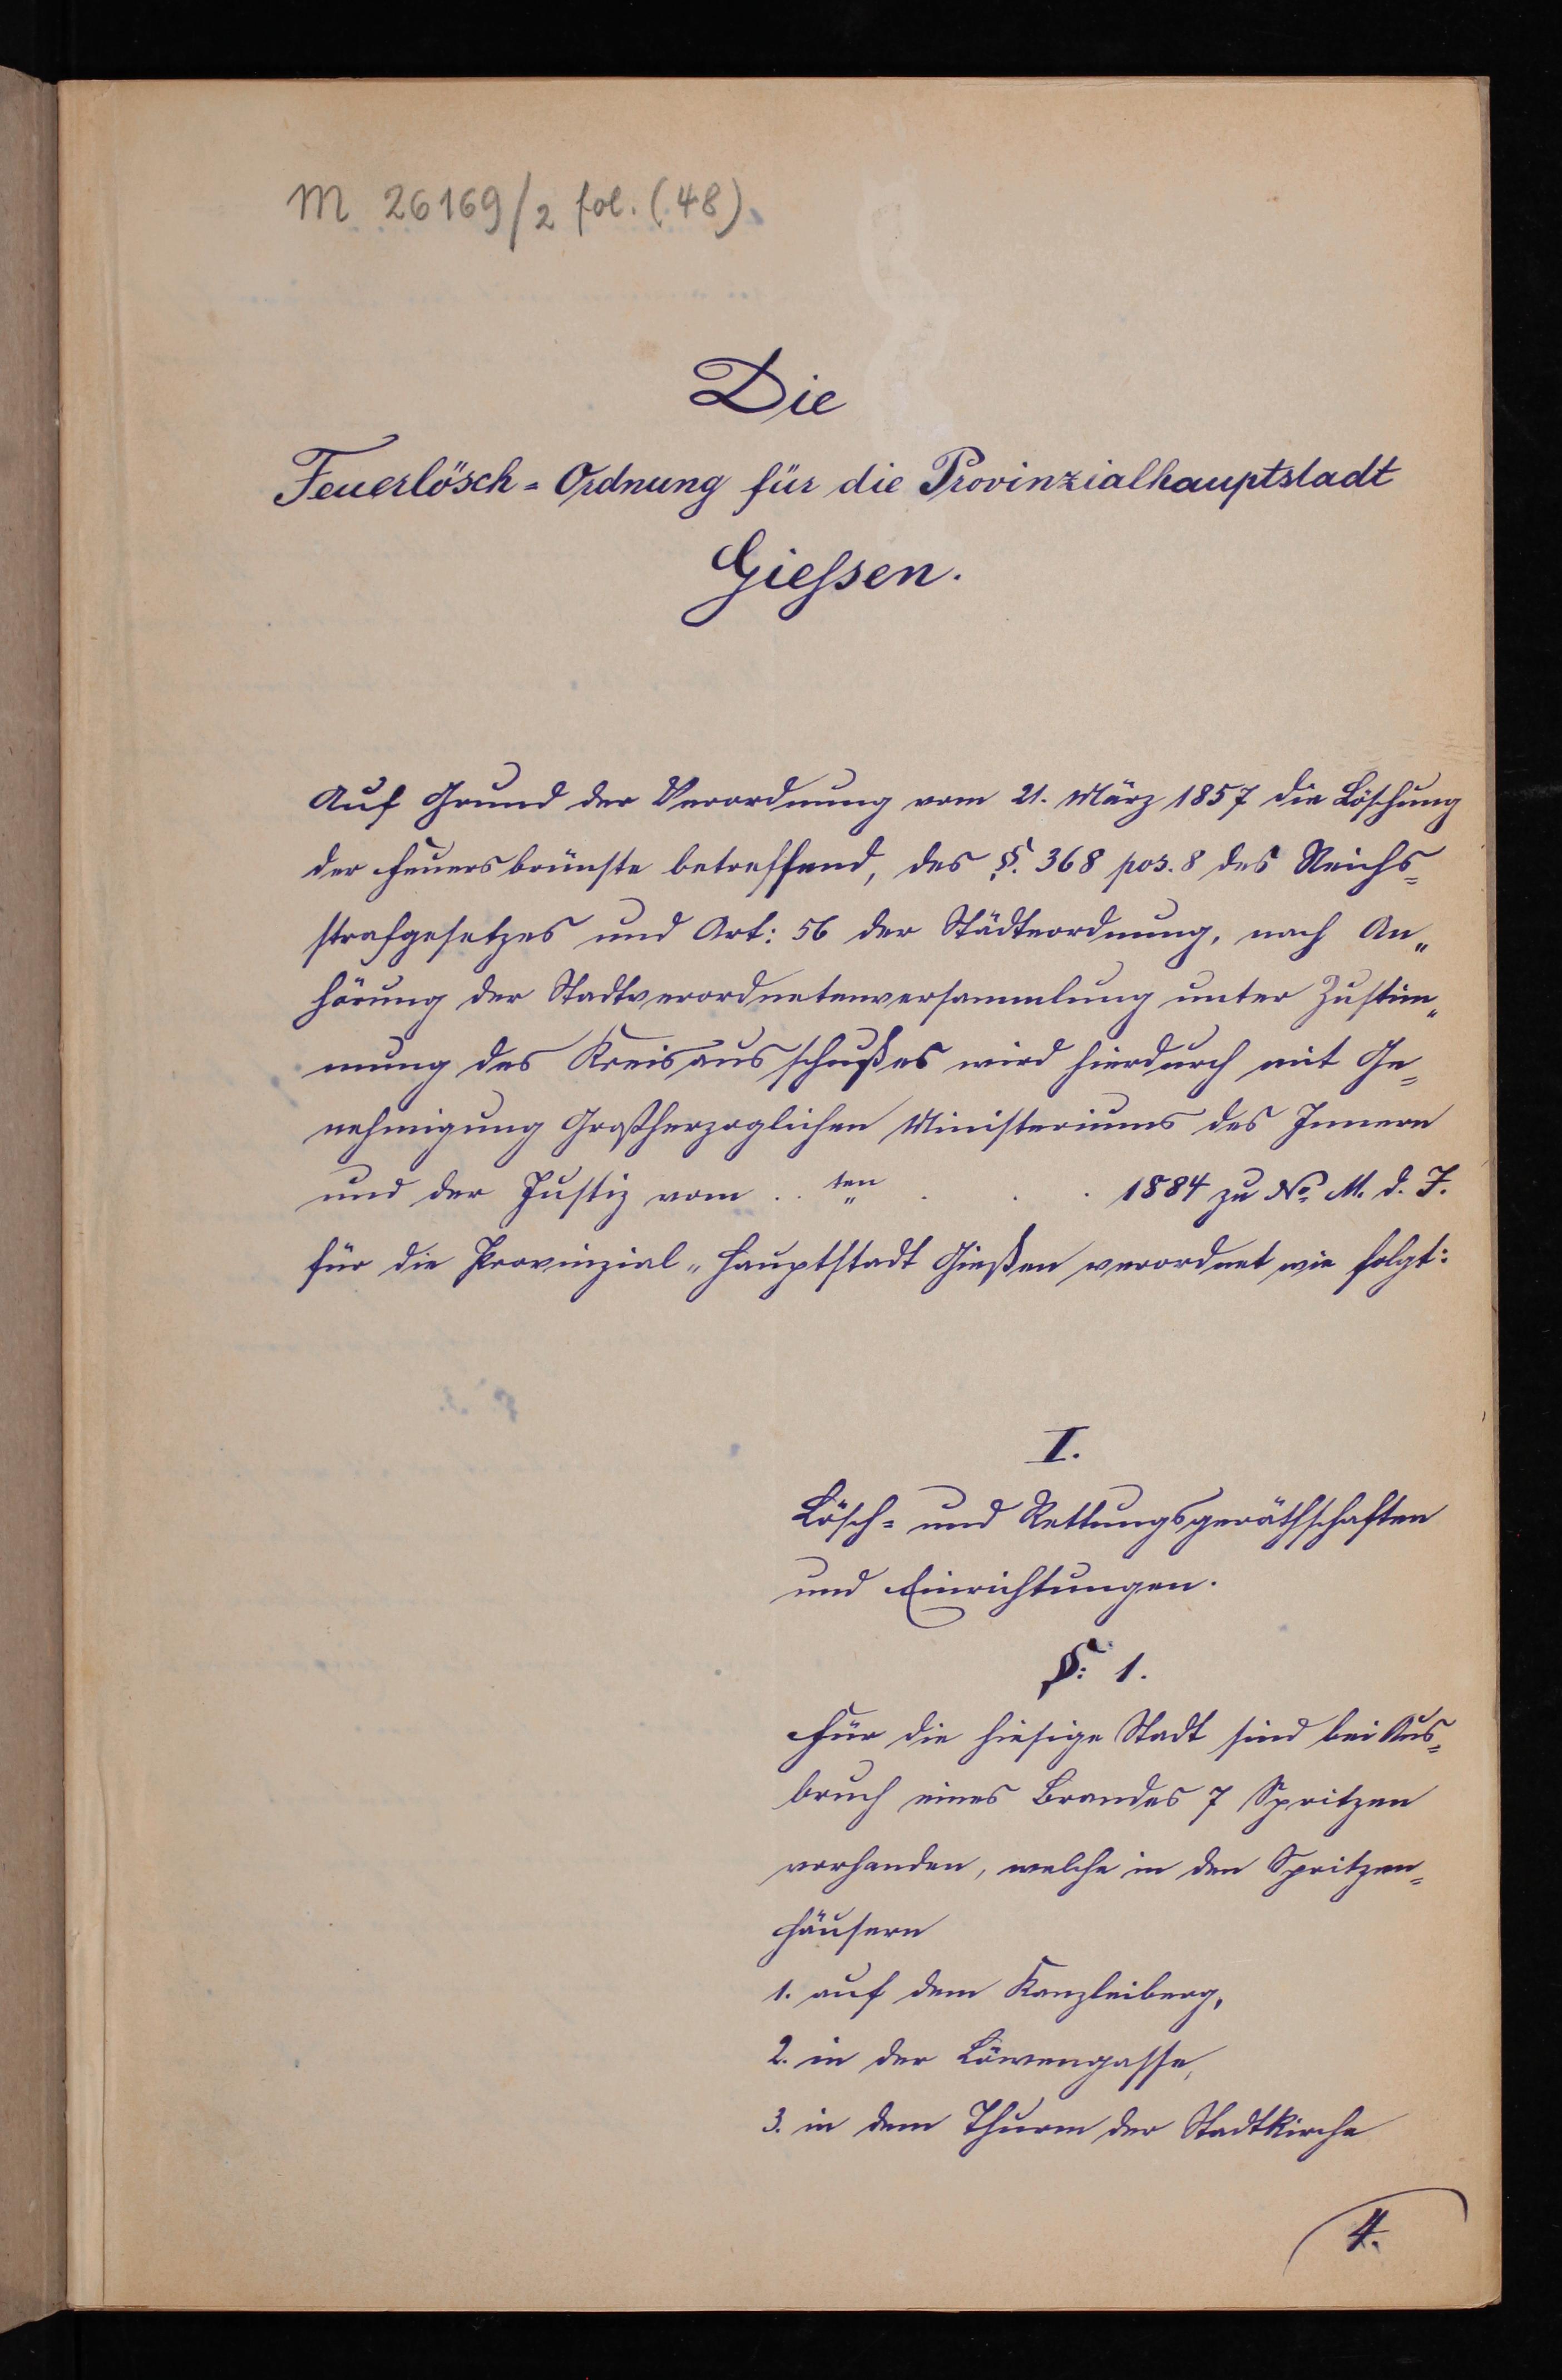 M 26169/2 fol. (48)
Die
Feuerlösch=Ordnung für die Provinzialhauptstadt
Giessen.
Auf Grund der Verordnung vom 21. März 1857 die Löschung
der Feuersbrünste betreffend, des §. 368 pos. 8 des Reichs=
strafgesetzes und Art: 56 der Städteordnung, nach An„
hörung der Stadtverordnetenversammlung unter Zustim„
mung des Kreisausschußes wird hierdurch mit Ge=
nehmigung Großherzoglichen Ministeriums des Innern
und der Justiz vom . . ten . . . 1884 zu No. M. d. J.
für die Provinzial„Hauptstadt Gießen verordnet wie folgt:
I.
Lösch= und Rettungsgeräthschaften
und Einrichtungen.
§: 1.
Für die hiesige Stadt sind bei Aus=
bruch eines Brandes 7 Spritzen
vorhanden, welche in den Spritzen=
häusern
1. auf dem Kanzleiberg,
2. in der Löwengasse,
3. in dem Thurm der Stadtkirche
4.